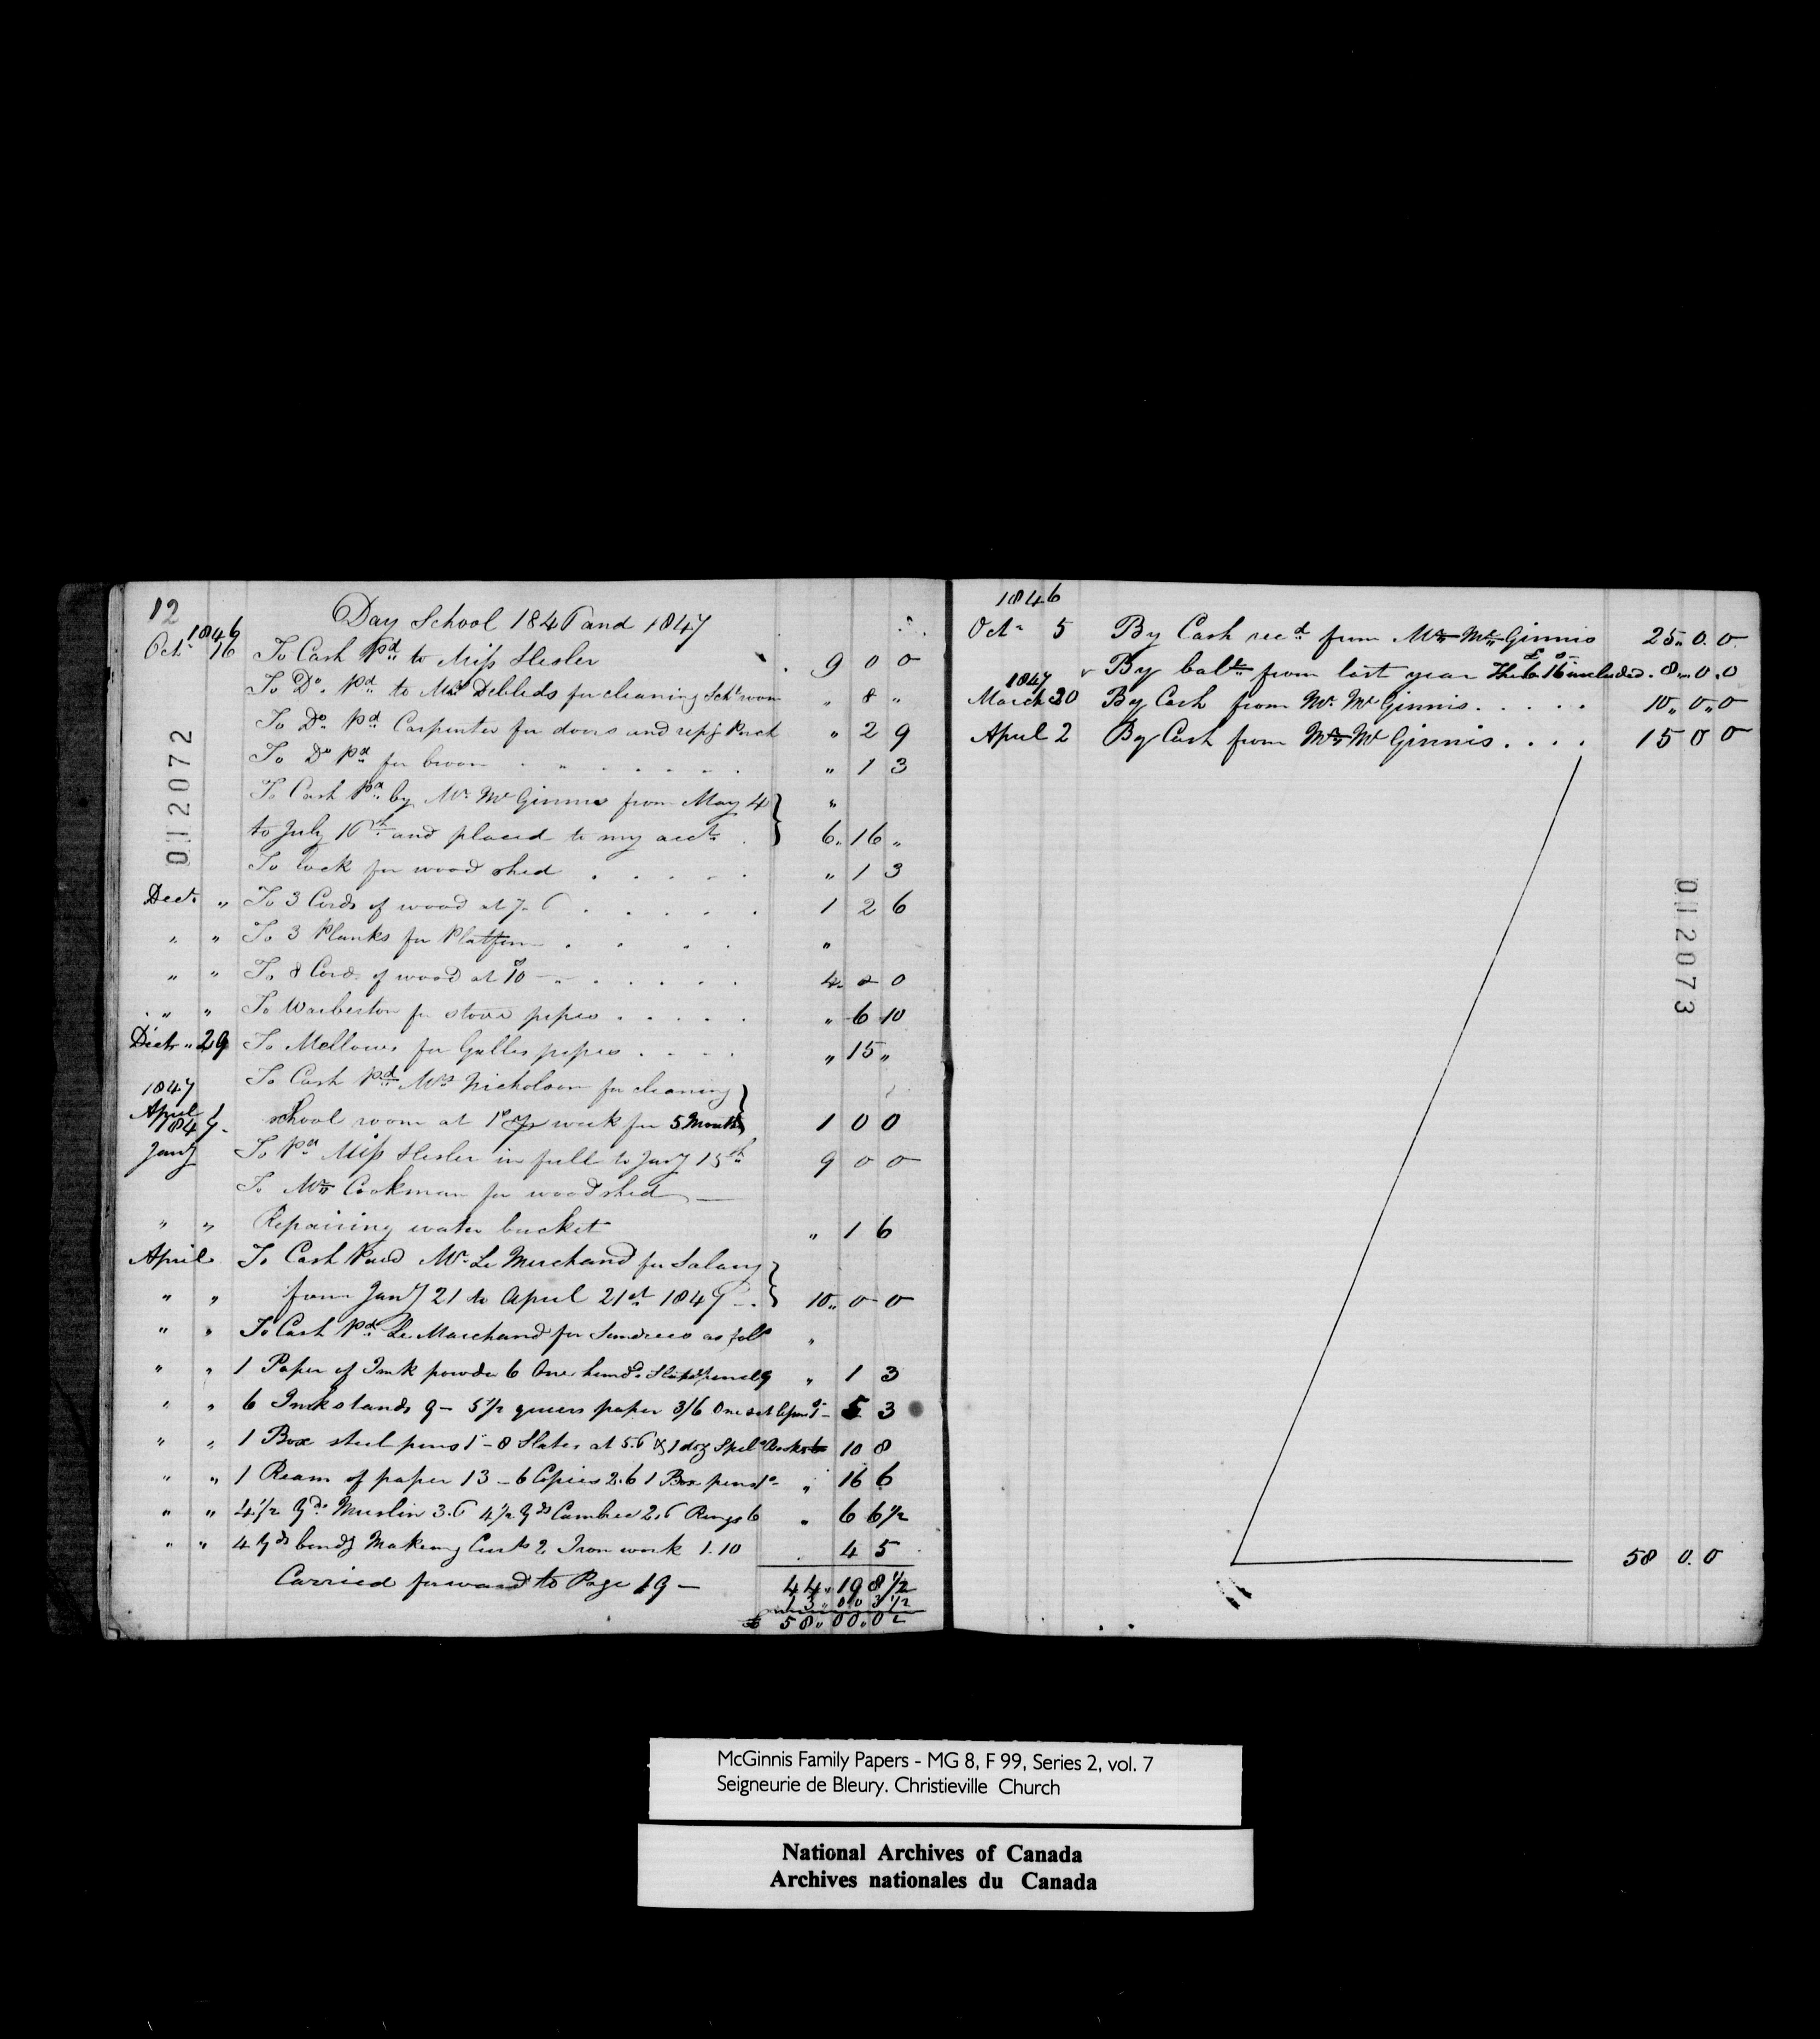 12
Day School 1846 and 1847
1846
Octr 16 To Cash Pd to Miss Hesler . 9 0 0
To Do. Pd to Mrs Debleds for cleaning Schl room " 8 "
To Do Pd Carpenter for doors and repg Porch " 2 9
To Do Pd for broom . " . . . . . " 1 3
To Cash Pd by Mr McGinnis from May 4 "
to July 16th and placed to my acct. 6. 16 "
To lock for wood shed . . . . . " 1 3
Decr " To 3 Cords of wood at 7-6 . . . . . 1 2 6
" " To 3 Planks for Platform . . . . "
" " To 8 Cords of wood at 10 - . . . . . 4. 0 0
" " To Warbeston for stove pipes . . . . . " 6 10
Decr " 29 To Mellows for Gulles pipes . . . . " 15 "
To Cash Pd Mrs Nicholson for cleaning
1847
April 1 school room at 1s per week for 5 Months 1 0 0
1847
Jany To Pd Miss Hesler in full to Jany 15th 9 0 0
To Mr Cookman for wood shed —
" " Repairing water bucket " 1 6
April To Cash Paid Mr Le Marchand for Salary
" " from Jany 21 to April 21st 1847 - . 10" 0 0
" " To Cash Pd Le Marchand for Sundries as foll "
" " 1 Paper of Ink powder 6 One hund. Slate pencils 9 " 1 3
" " 6 Inkstands 9 - 5 1/2 quires paper 3/6 One set 1- 5 3
" " 1 Box steel pens 1 - 8 Slates at 5.6 & 1 doz Spelg Books 10 8
" " 1 Ream of paper 13 - 6 Copies 2.6 1 Box pens 1s- " 16 6
" " 4 1/2 Yds Muslin 3.6 4 1/2 Yds Cambric 2.6 Rings 6 " 6 6 1/2
" " 4 Yds bindg Making Curts 2 Iron work 1.10 . 4 5
Carried forward to Page 19 — 44 " 19 8 1/2
13 " 0 " 3 1/2
£ 58 " 00 " 0
012072
1846
Octr 5 By Cash recd from Mr McGinnis 25 " 0. 0
By balce from last year The £6 16s included . 8 " 0 . 0
1847
March 30 By Cash from Mr McGinnis . . . . . 10 " 0 " 0
April 2 By Cash from Mr McGinnis . . . . 15 0 0
58 0. 0
012073
McGinnis Family Papers - MG 8, F 99, Series 2, vol. 7
Seigneurie de Bleury. Christieville Church
National Archives of Canada
Archives nationales du Canada